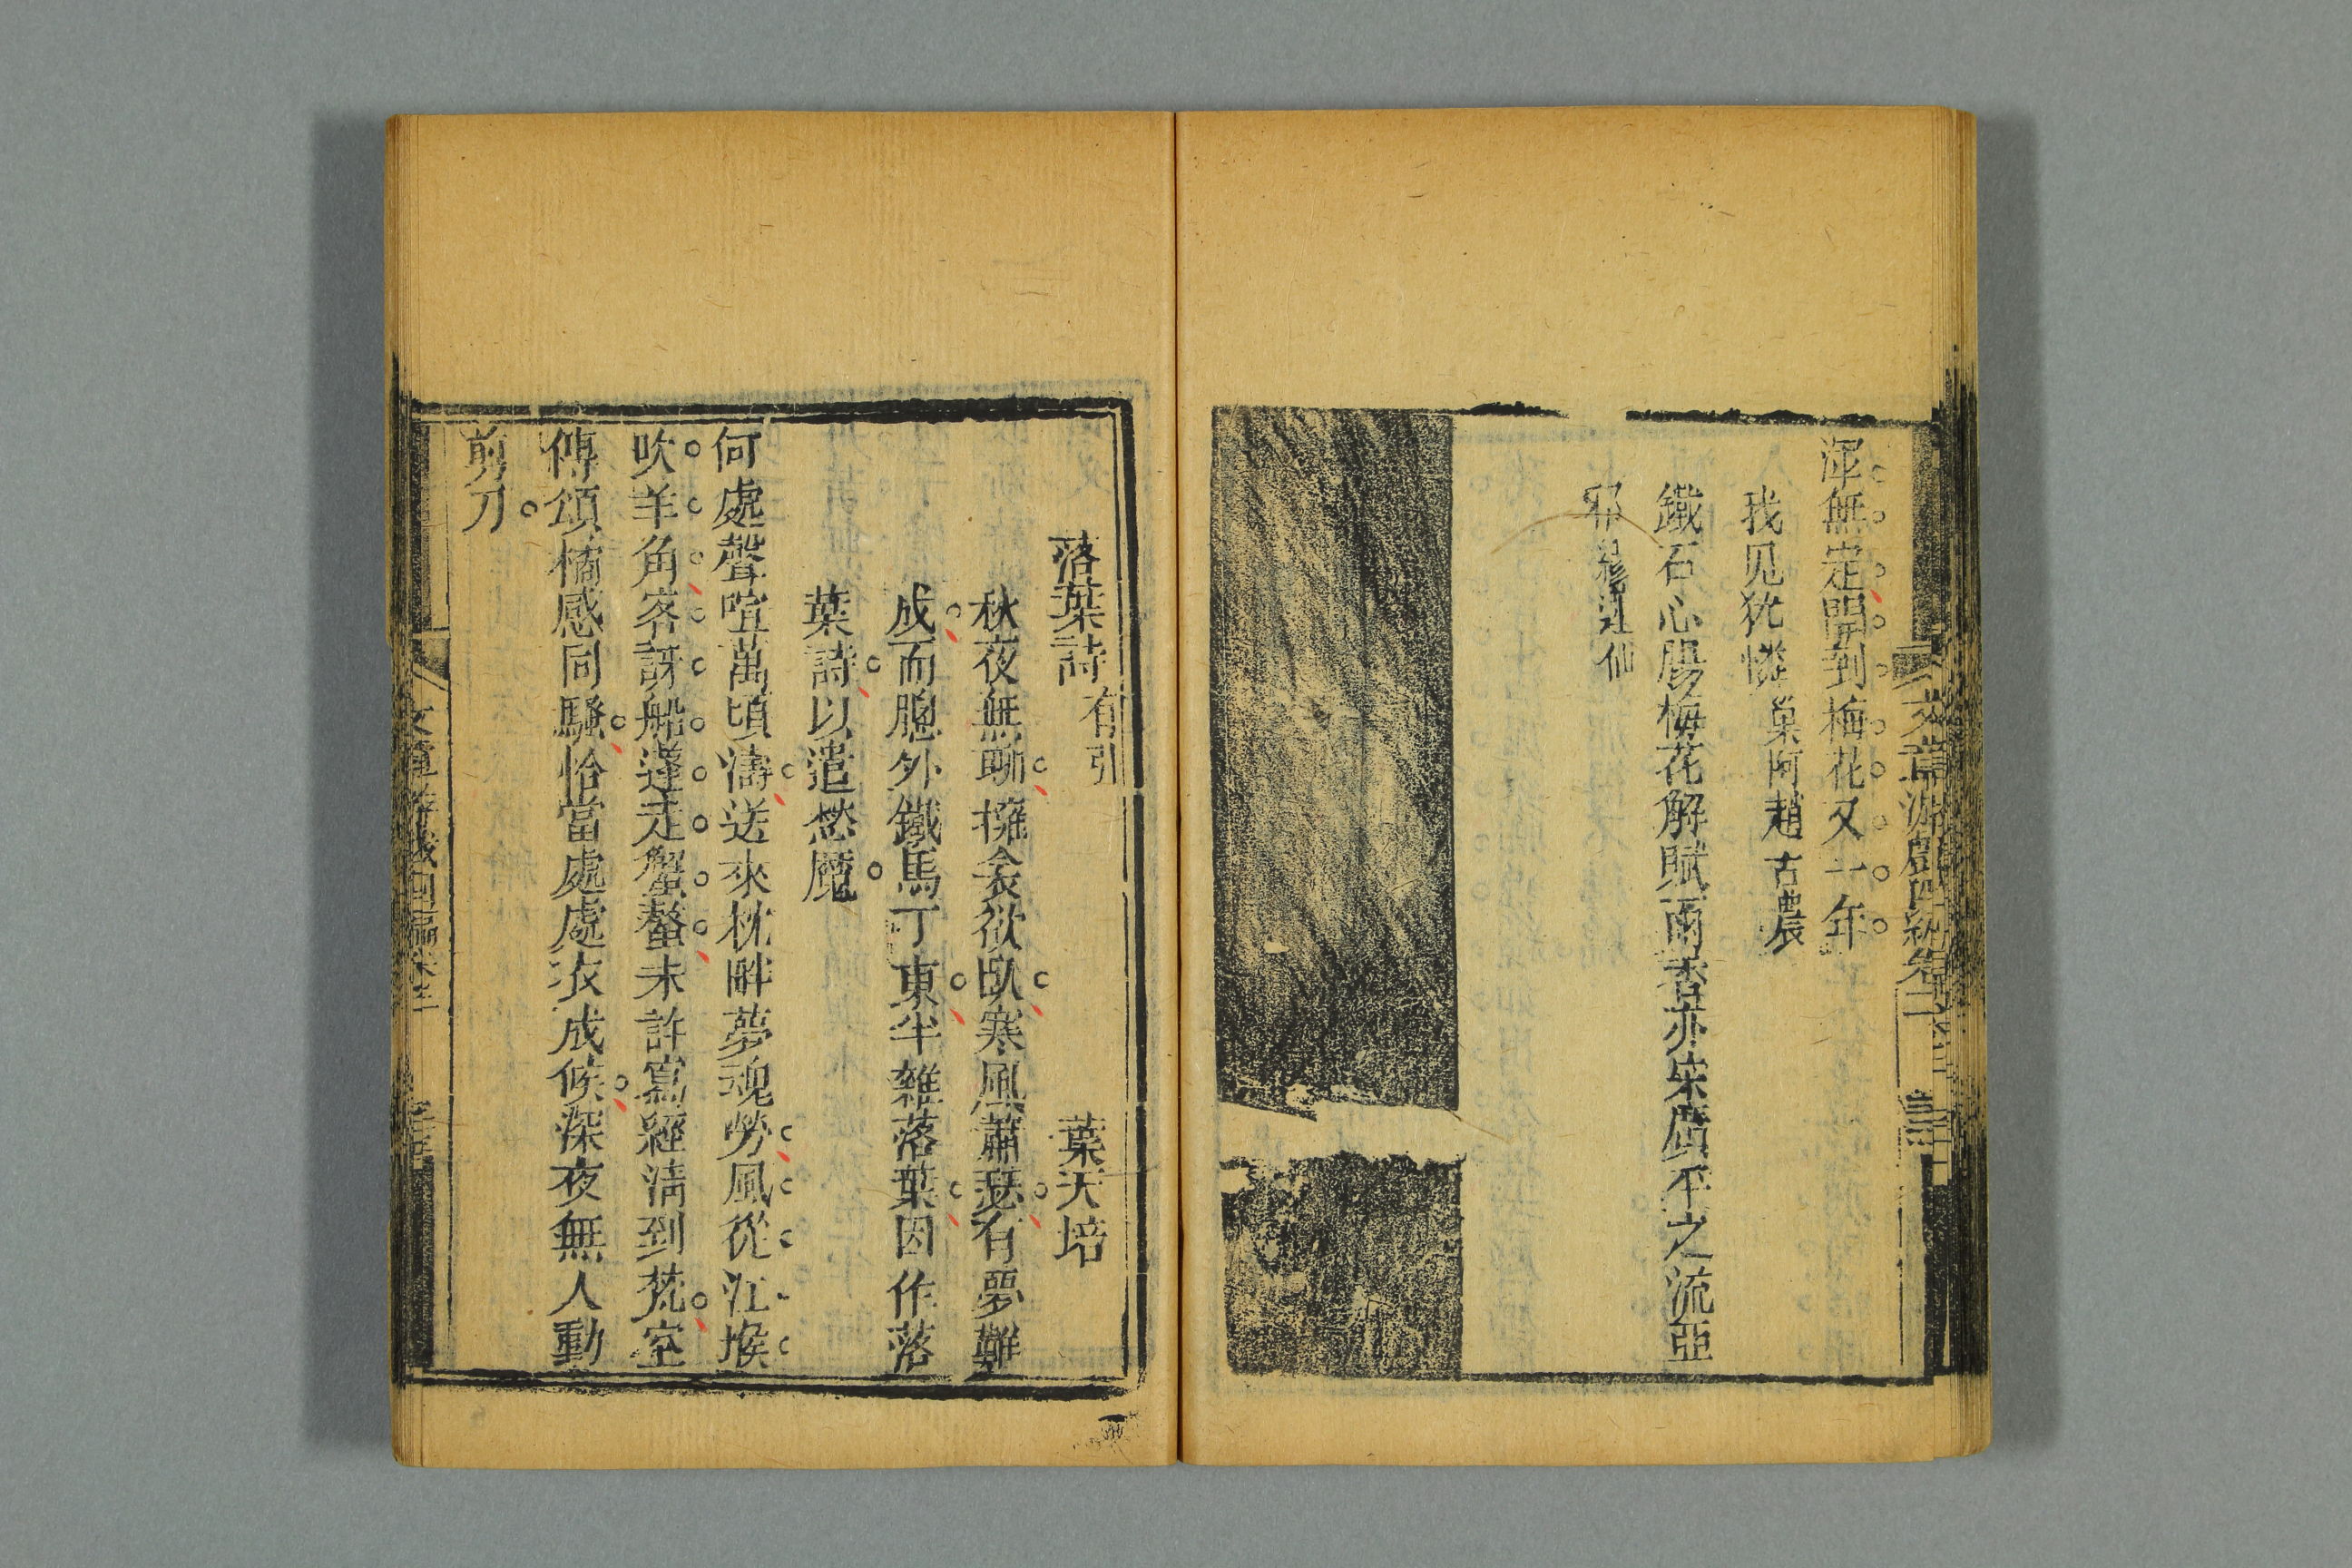 文章游戲四編卷二
渾無定開到梅花又一年
我見犹憐 巢阿趙古農
鐵石心腸梅花解賦而香亦宋廣平之流亞
邪 繆蓮仙
落葉詩 有引 葉天培
秋夜無聊擁衾欲臥寒風蕭瑟有夢難
成而牕外鐵馬丁東半雜落葉因作落
葉詩以遣愁魔
何處聲喧萬頃濤送來枕畔夢魂勞風從江堠
吹羊角客訝船邊走蟹螯未許寫經清到梵空
傳頌橘感同騷恰當處處衣成候深夜無人動
剪刀